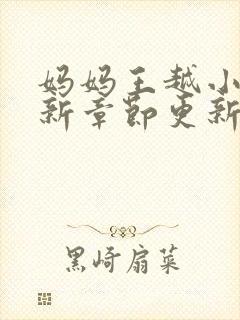 妈妈王越小
新章节更新
黑崎扇菜